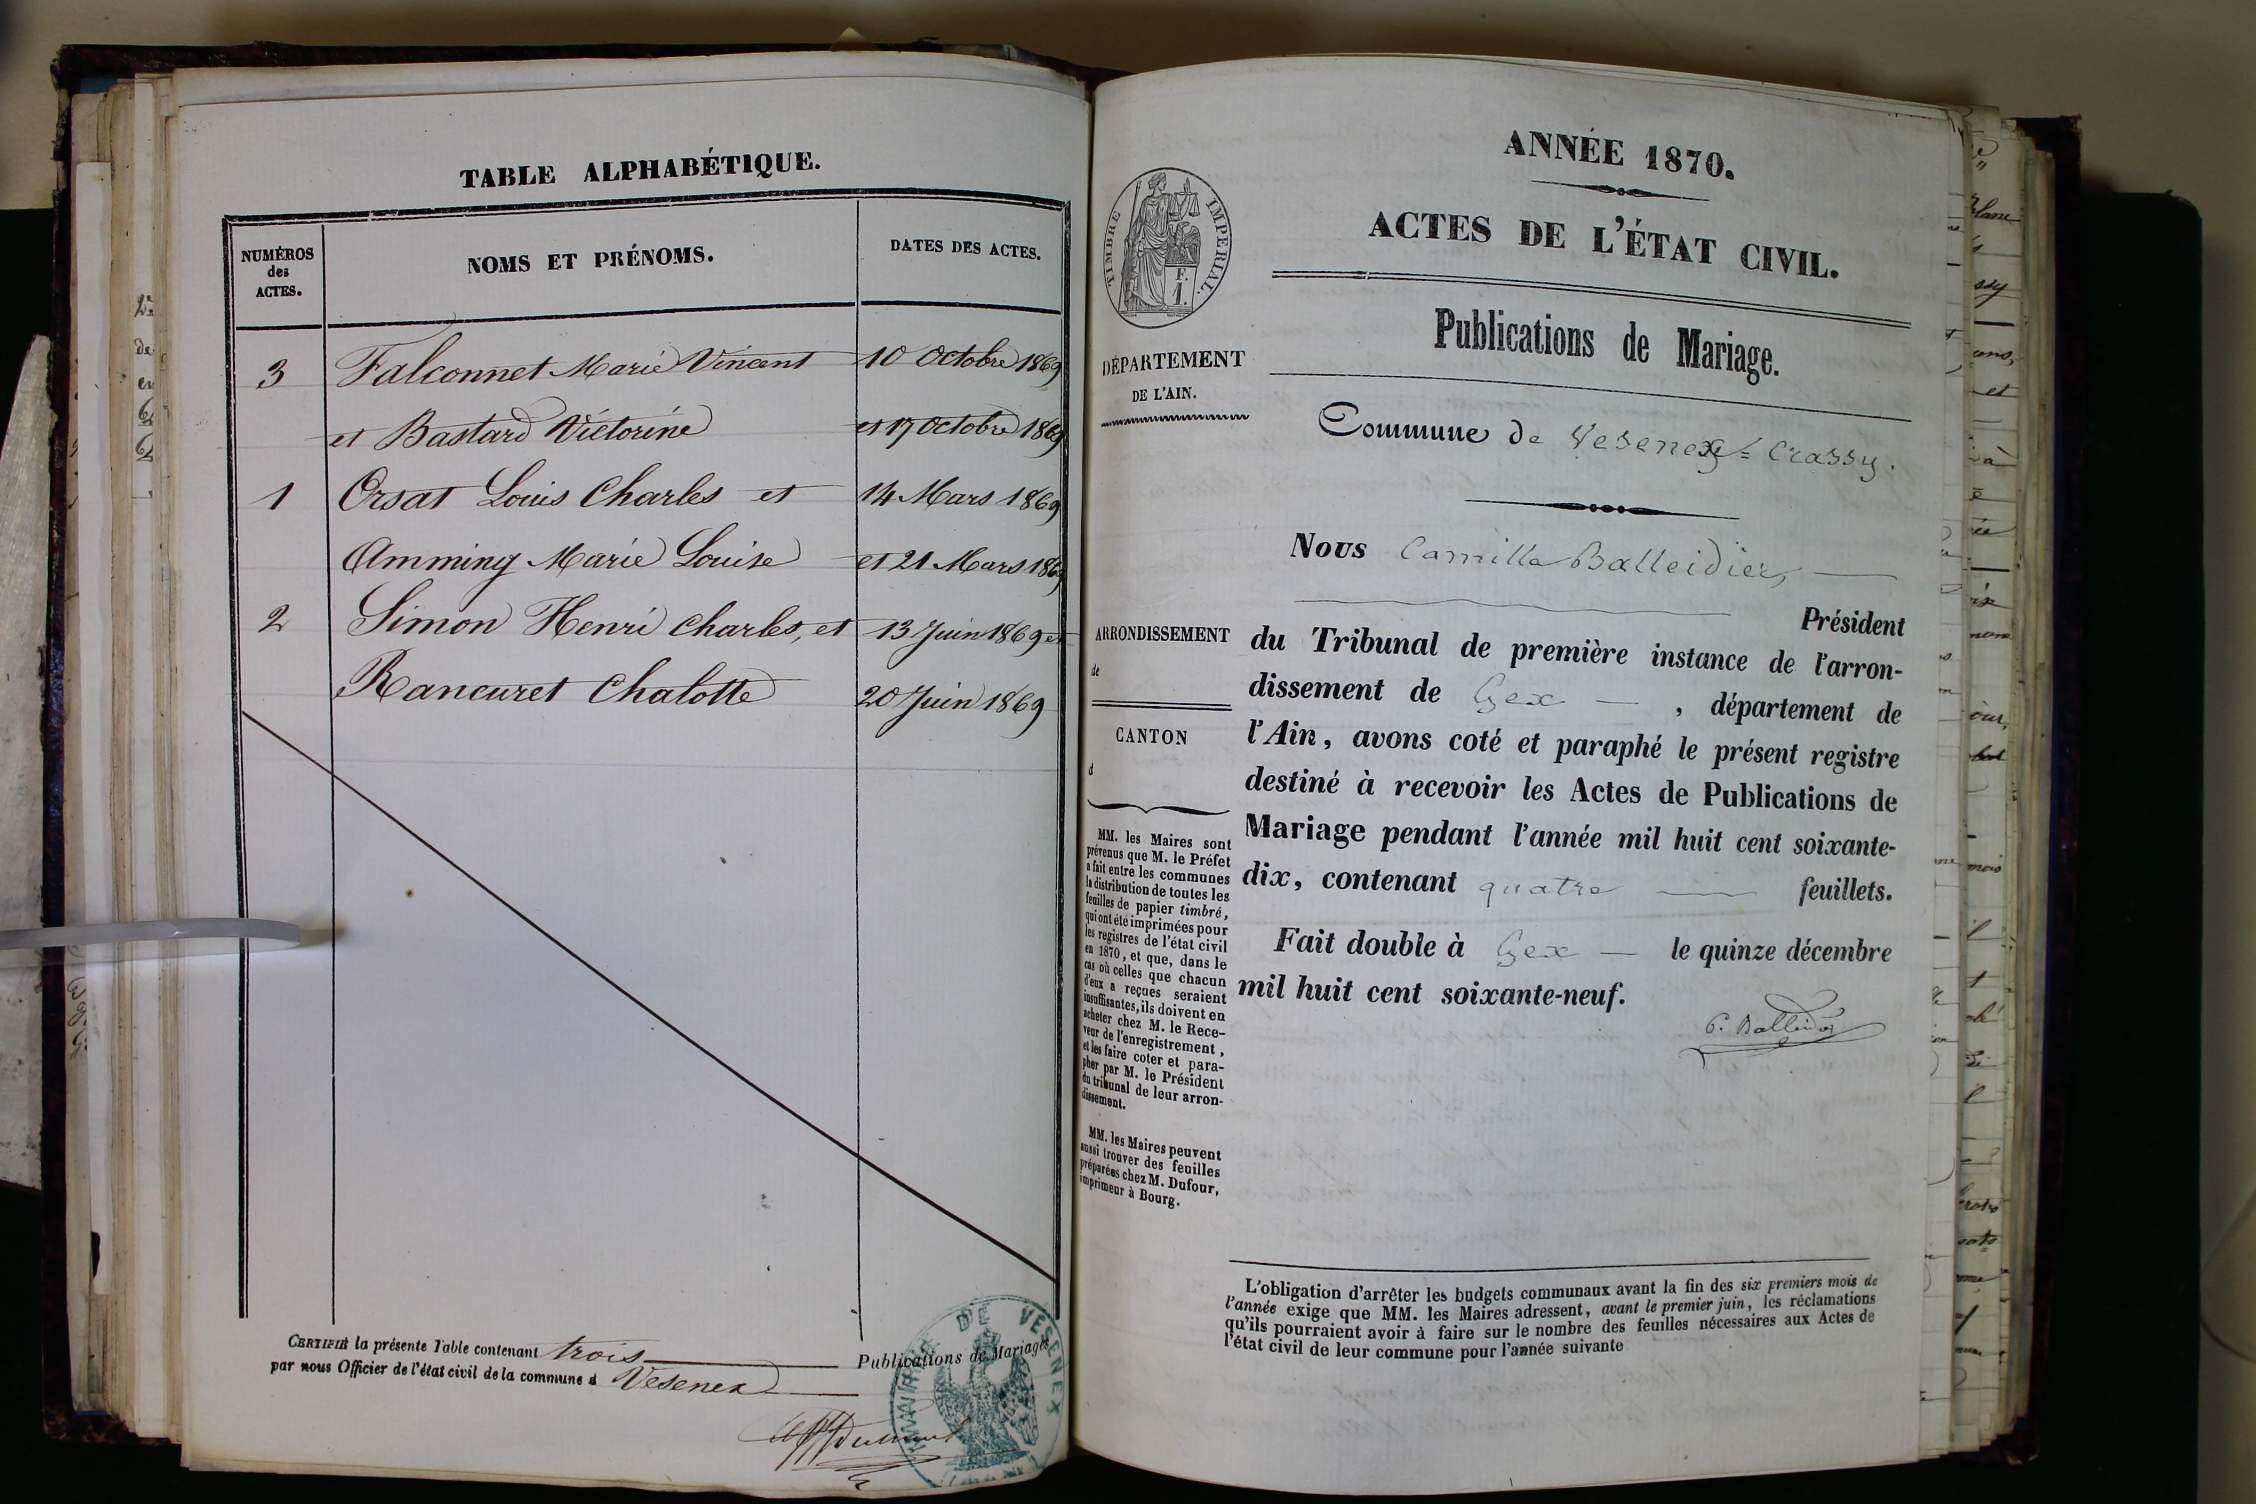 TABLE ALPHABÉTIQUE.
NUMÉROS
des
ACTES.
NOMS ET PRÉNOMS.
DATES DES ACTES.
3 Falconnet Marie Vincent 10 Octobre 1869
et Bastard Victorine et 17 Octobre 1869
1 Orsat Louis Charles et 14 Mars 1869
Amming Marie Louise et 21 Mars 1869
2 Simon Henri Charles, et 13 Juin 1869 et
Rancuret Chalotte 20 Juin 1869
CERTIFIÉ la présente Table contenant trois Publications de Mariages
par nous Officier de l'état civil de la commune d Vesenex
MAIRIE DE VESENEX
ANNÉE 1870.
ACTES DE L'ÉTAT CIVIL.
TIMBRE IMPERIAL.
F.
1.
Publications de Mariage.
DÉPARTEMENT
DE L'AIN.
Commune de Vesenex=Crassy.
Nous Camille Balleidier,
Président
ARRONDISSEMENT
de
CANTON
d
du Tribunal de première instance de l'arron-
dissement de Gex , département de
l'Ain, avons coté et paraphé le présent registre
destiné à recevoir les Actes de Publications de
Mariage pendant l'année mil huit cent soixante-
dix, contenant quatre feuillets.
Fait double à Gex le quinze décembre
mil huit cent soixante-neuf.
C. Balleidier
MM. les Maires sont
prévenus que M. le Préfet
a fait entre les communes
la distribution de toutes les
feuilles de papier timbré,
qui ont été imprimées pour
les registres de l'état civil
en 1870, et que, dans le
cas où celles que chacun
d'eux a reçues seraient
insuffisantes, ils doivent en
acheter chez M. le Rece-
veur de l'enregistrement,
et les faire coter et para-
pher par M. le Président
du tribunal de leur arron-
dissement.
MM. les Maires peuvent
aussi trouver des feuilles
préparées chez M. Dufour,
imprimeur à Bourg.
L'obligation d'arrêter les budgets communaux avant la fin des six premiers mois de
l'année exige que MM. les Maires adressent, avant le premier juin, les réclamations
qu'ils pourraient avoir à faire sur le nombre des feuilles nécessaires aux Actes de
l'état civil de leur commune pour l'année suivante